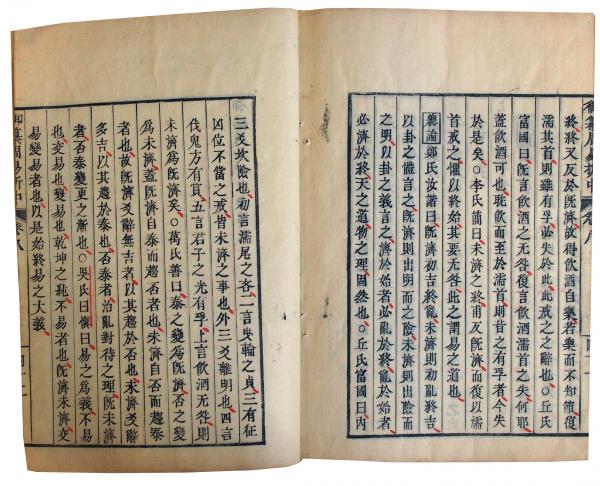 終終又反於旣濟故得飲酒自樂若樂而不知節復
濡其首則雖有孚必失於此此戒之之辭也○丘氏
富國曰旣言飲酒之无咎復言飲酒濡首之失何耶
蓋飲酒可也耽飲而至於濡首則昔之有孚者今失
於是矣○李氏簡曰未濟之終甫反旣濟而復以濡
首戒之懼以終始其要无咎此之謂易之道也
總論鄭氏汝諧曰旣濟初吉終亂未濟則初亂終吉
以卦之體言之旣濟則出明而之險未濟則出險而
之明以卦之義言之濟於始者必亂於終亂於始者
必濟於終天之道物之理固然也○丘氏富國曰內
三爻坎險也初言濡尾之吝二言曳輪之貞三有征
凶位不當之戒皆未濟之事也外三爻離明也四言
伐鬼方有賞五言君子之光有孚上言飲酒无咎則
未濟爲旣濟矣○萬氏善曰泰之變爲旣濟否之變
爲未濟蓋旣濟自泰而趨否者也未濟自否而趨泰
者也故旣濟爻辭无吉者以其趨於否也未濟爻辭
多吉以其趨於泰也否泰者治亂對待之理旣未濟
者否泰變更之漸也○吳氏曰愼曰易之爲義不易
也交易也變易也乾坤之純不易者也旣濟未濟交
易變易者也以是始終易之大義
御纂周易折中 卷八